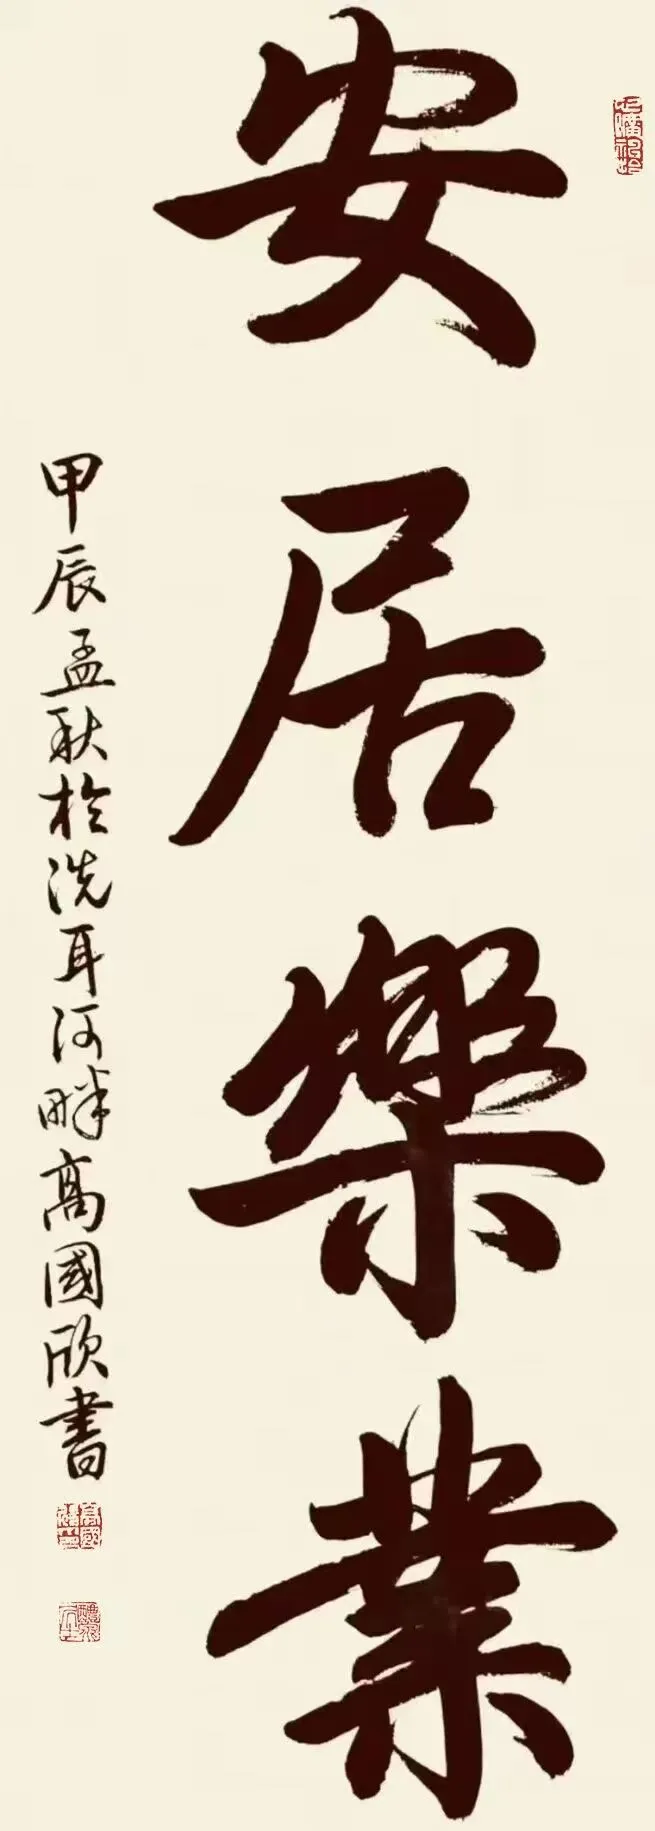 安居樂業
甲辰孟秋於洗耳河畔高國欣書